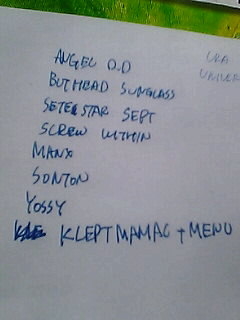 ANGEL O.D
BUTHEAD SUNGLASS
SETEL STAR SEPT
SCREW WITHIN
MANX
SONTON
YOSSY
KLEPTMAMAC + MENU